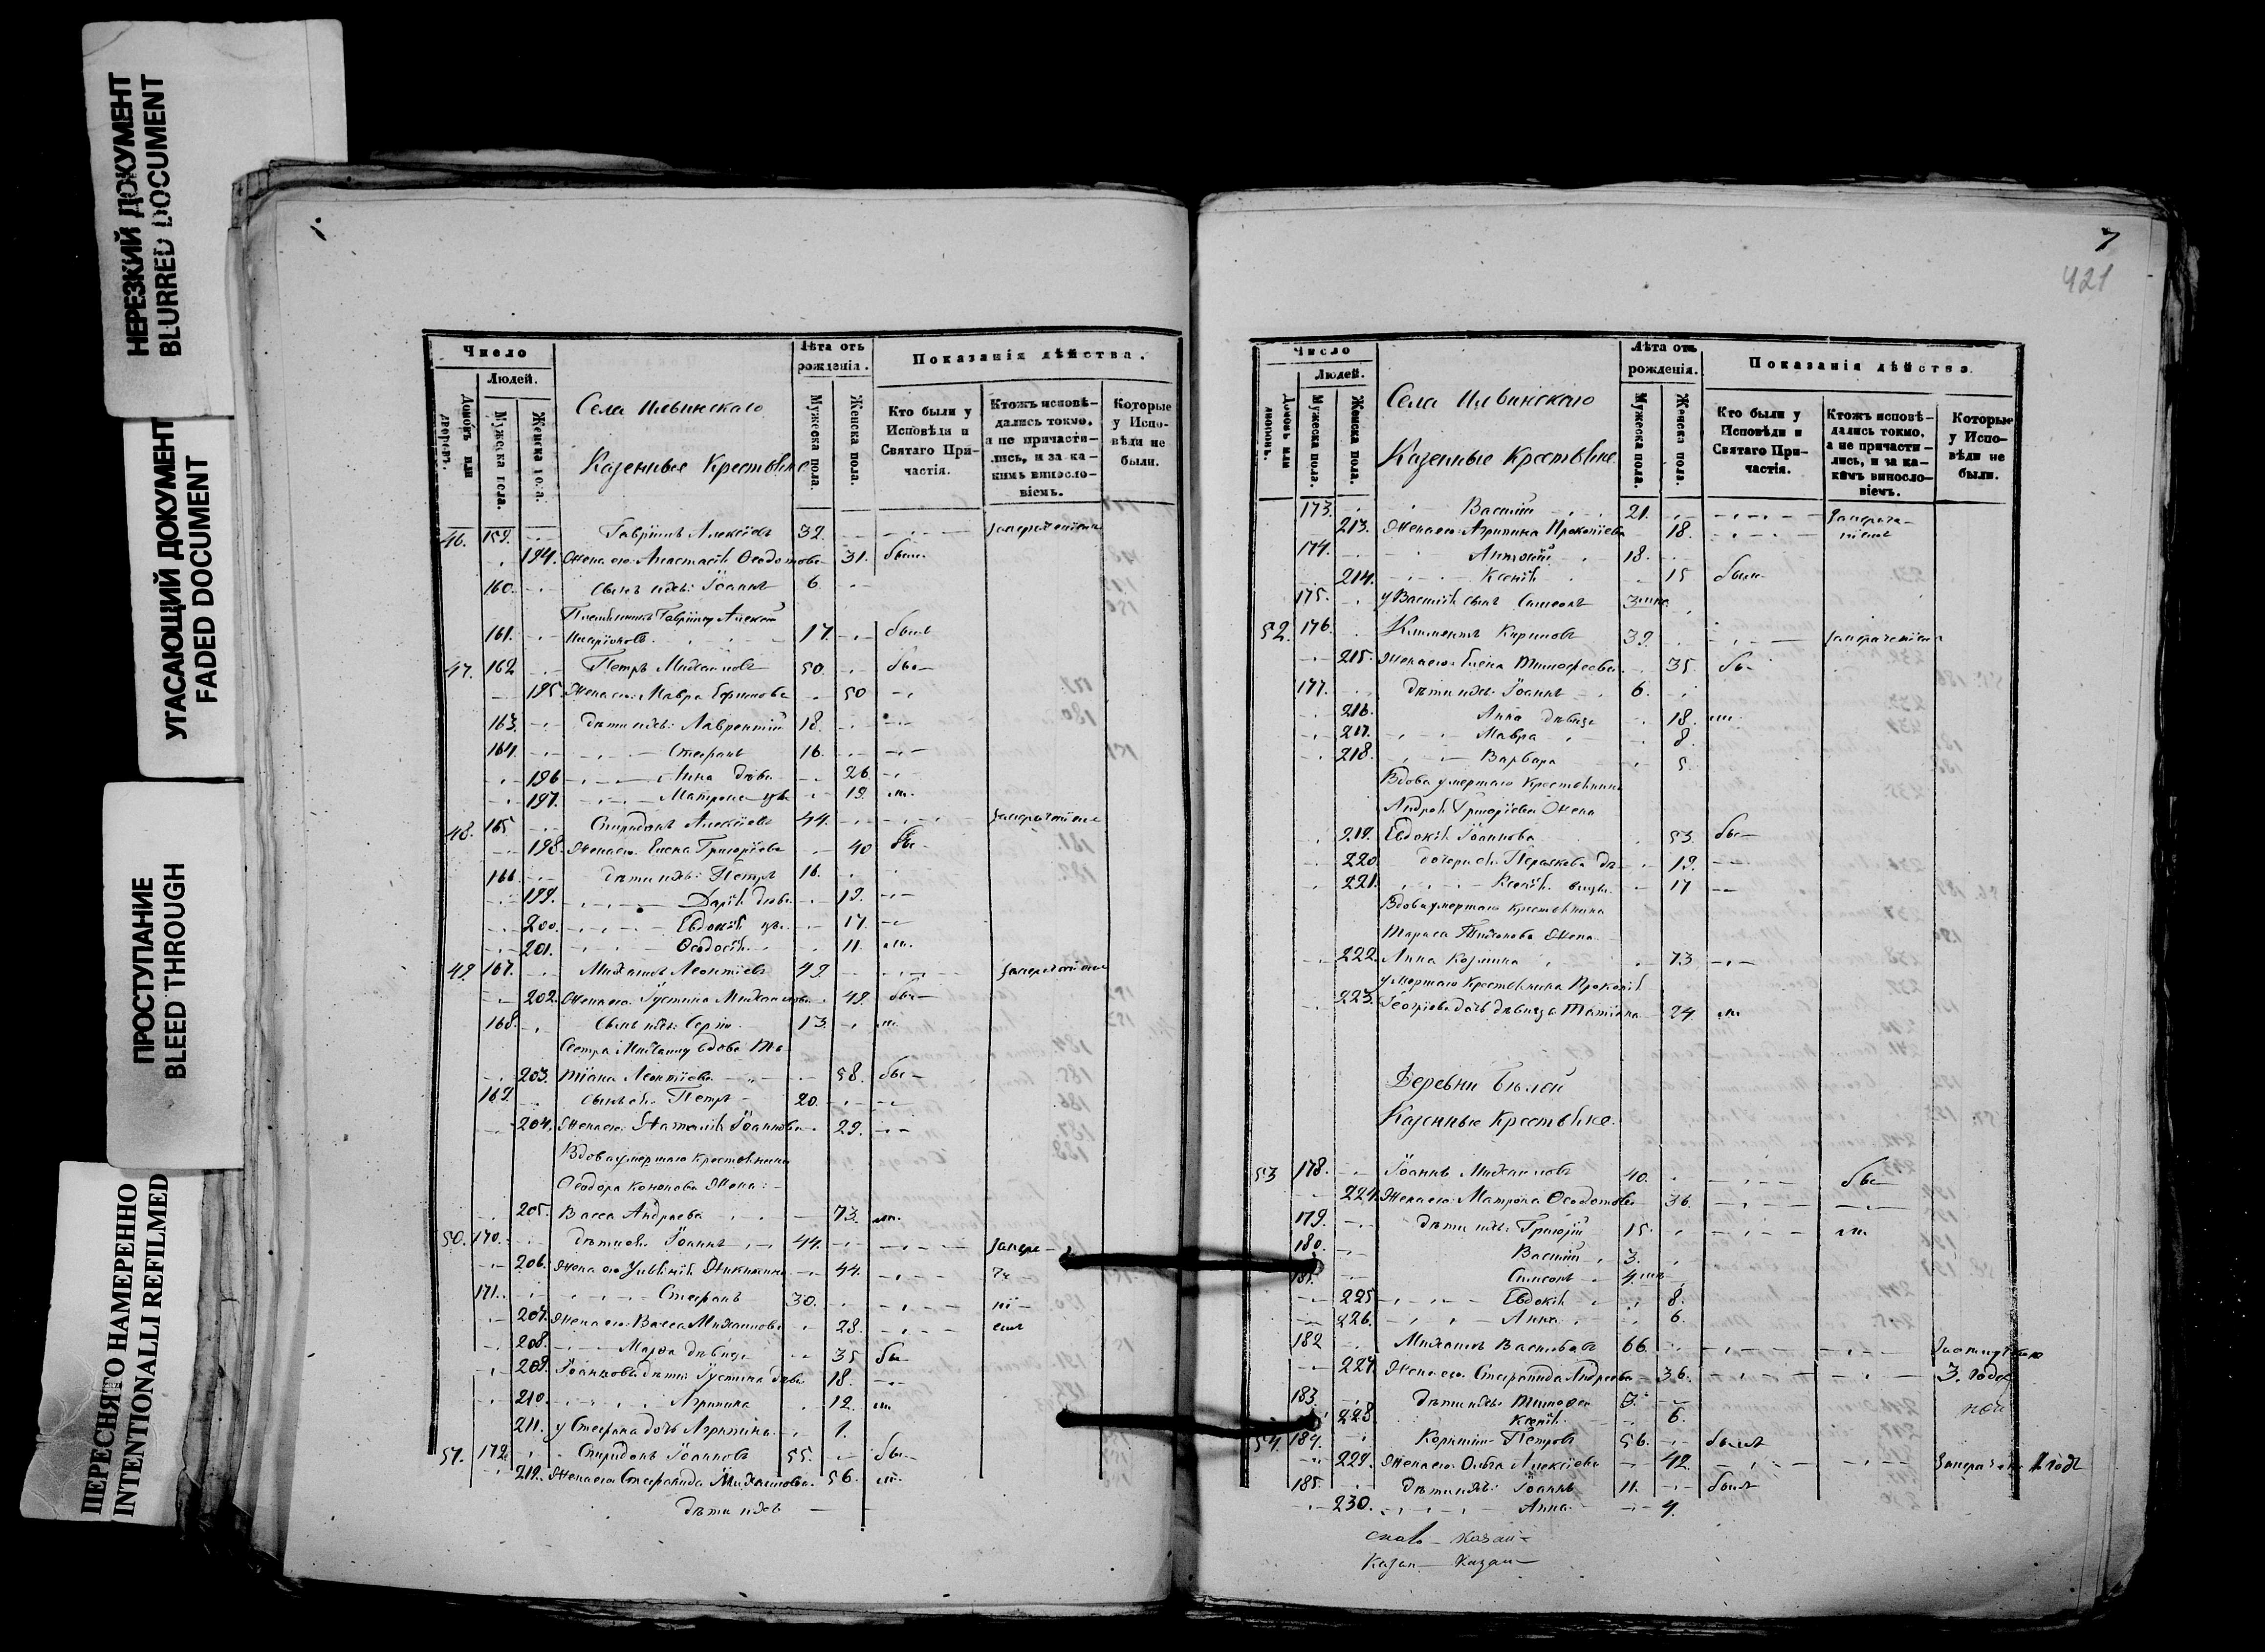 НЕРЕЗКИЙ ДОКУМЕНТ
BLURRED DOCUMENT
УГАСАЮЩИЙ ДОКУМЕНТ
FADED DOCUMENT
ПРОСТУПАНИЕ
BLEED THROUGH
ПЕРЕСНЯТО НАМЕРЕННО
INTENTIONALLI REFILMED
Число
Людей.
Домовъ или дворовъ.
Мужеска пола.
Женска пола.
Села Ильинскаго
Казенные Крестьяне
Лѣта отъ рожденія.
Мужеска пола.
Женска пола.
Показанія дѣйства.
Кто были у Исповѣди и Святаго Причастія.
Ктожъ исповѣдались токмо, а не причастились, и за какимъ винословіемъ.
Которые у Исповѣди не были.
46. 159. Гавріилъ Алексіевъ 32.
194. Жена его Анастасія Ѳеодотова 31. были
160. Сынъ ихъ: Іоаннъ 6.
161. 17. былъ
47. 162 Петръ Михаиловъ 50. бы
195. Жена его: Мавра Ефимова 50
163. Дѣти ихъ: Лаврентій 18.
164. Стефанъ 16.
196 Анна дѣви 26.
197. Матрона цы 19. ли.
48. 165 Спиридонъ Алексіевъ 44.
198. Жена его. Елена Григоріева 40 бы
166 Дѣти ихъ: Петръ 16.
199. Дарія дѣви 19.
200. Евдокія цы. 17.
201. Ѳеодосія 11. ли.
49. 167. Михаилъ Леонтіевъ 49.
202. Жена его Іустина Михаилова 49. бы
168. Сынъ ихъ: Сергій 13. ли.
Сестра Михаилу вдова Та
203. тіана Леонтіева 58. бы
169. Сынъ ея. Петръ 20.
204. Жена его: Наталія Іоаннова 29.
Вдова умершаго крестьянина
Ѳеодора Кононова Жена:
205. Васса Андреева 73. ли.
50. 170. Дѣти ея. Іоаннъ 44. запре
206. Жена его Уліянія 44. ще
171. Стефанъ 30. ні
207. Жена его. Васса Михаилова 28. емъ
208. Марѳа дѣвица 35 бы
209. Іоанновы дѣти: Іустина дѣви 18.
210. Агрипина 12. ли
211. у Стефана дочь Агрипина 1.
51. 172. Спиридонъ Іоанновъ 55. бы
212. Жена его Стефанида Михаилова 56. ли.
Дѣти ихъ
7
421
Число
Людей.
Домовъ или дворовъ.
Мужеска пола.
Женска пола.
Села Ильинскаго
Казенные Крестьяне.
Лѣта отъ рожденія.
Мужеска пола.
Женска пола.
Показанія дѣйства.
Кто были у Исповѣди и Святаго Причастія.
Ктожъ исповѣдались токмо, а не причастились, и за какимъ винословіемъ.
Которые у Исповѣди не были.
173. Василій 21.
213. Жена его: Агрипина Прокопіева 18.
174. Антоній 18.
214. Ксенія 15 были
175. у Василія сынъ Симеонъ
52. 176. Климентъ Кириловъ 39.
215. Жена его: Елена Тимоѳеева 35. бы
177. Дѣти ихъ: Іоаннъ 6.
216. Анна дѣвица 18. ли.
217. Мавра 8.
218. Варвара 5.
Вдова умершаго крестьянина
Андрея Григоріева Жена
219. Евдокія Іоаннова 53. бы
220. дочери ея: Параскева дѣ 19.
221. Ксенія вицы 17
Вдова умершаго крестьянина
Тараса Тихонова Жена
222. Анна Козмина 73
умершаго крестьянина Прокопія
223. Георгіева дочь дѣвица Татіана 24. ли
Деревни Бѣлой
Казенные Крестьяне.
53 178. Іоаннъ Михаиловъ 40. бы
224. Жена его: Матрона Ѳеодотова 36.
179. Дѣти ихъ: Григорій 15. ли
180. Василій 3.
181. Симеонъ 4.
225 Евдокія 8.
226. Анна 6.
182 Михаилъ Васильевъ 66.
227. Жена его. Стефанида Андреева 36. 3. года
183. Дѣти ихъ: Тимоѳей 3.
228. Ксенія 6.
54. 184. Корнилій Петровъ 56. былъ
229. Жена его: Ольга Алексіева 42.
185. Дѣти ихъ: Іоаннъ 11. былъ
230. Анна 4.